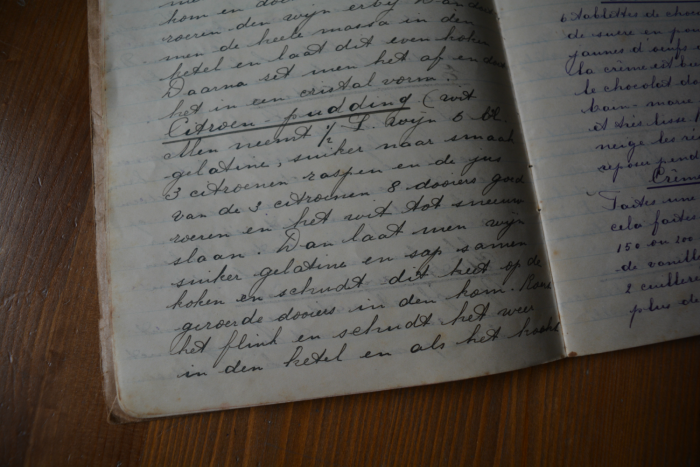 kom en doo
roeren den wijn erbij Dan doe
men de heele massa in den
ketel en laat dit even koken
Daarna set men het af en doe
het in een cristal vorm.
Citroen-pudding (wit
Men neemt 1/2 L. Wijn 6 bl.
gelatine, suiker naar smaak
3 citroenen raspen en de jus
van de 3 citroenen 8 dooiers goed
roeren en het wit tot sneeuw
slaan. Dan laat men wijn
suiker gelatine en sap samen
koken en schudt dit heet op de
geroerde dooiers in den kom. Roer
het flink en schudt het weer
in den ketel en als het kookt
6 tablettes de choc
de sucre en pou
jaunes d'oeufs
la crème est bie
le chocolat da
bain-marie
et très lisse
neige les
repose pend
Crème
Faites une
cela faites
150 ou 100
de vanille
2 cuillere
plus de